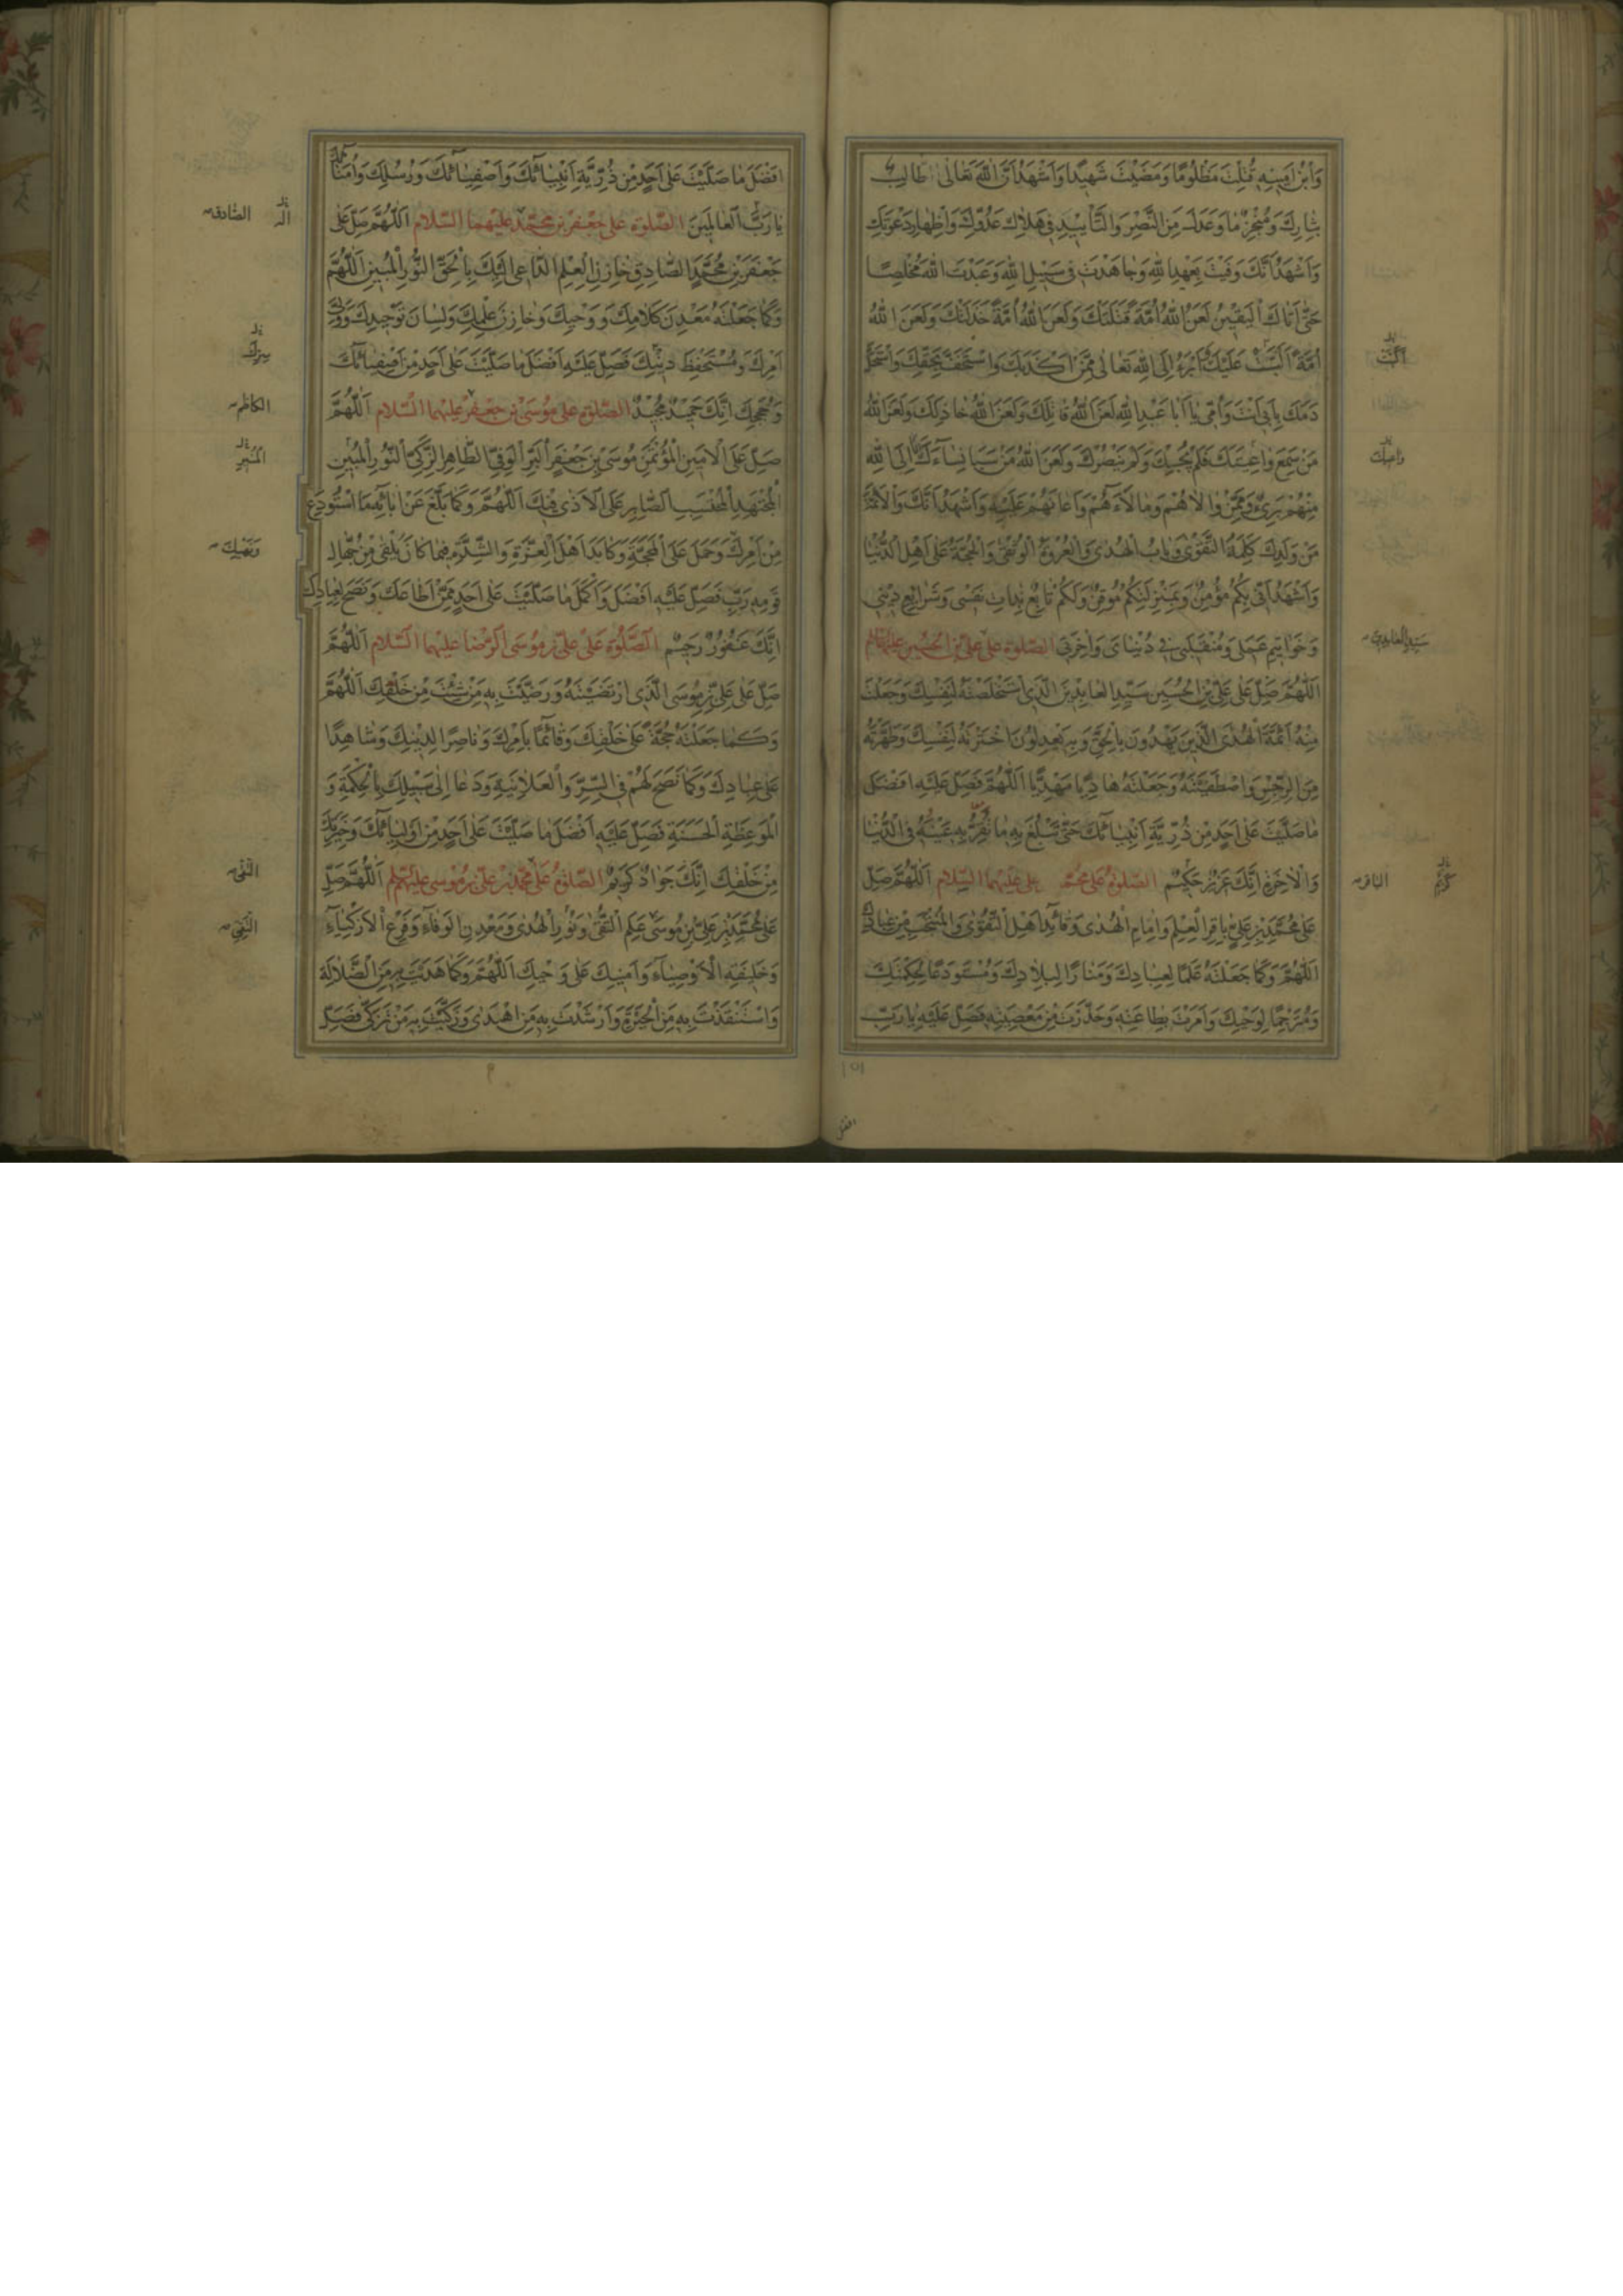 وَابْنُ اَمينِهِ قُتِلْتَ مَظْلُومًا وَمَضَيْتَ شَهيدًا وَاَشْهَدُ اَنَّ اللّٰهَ تَعَالٰى طَالِبٌ
بِثَارِكَ وَمُنْجِزٌ مَا وَعَدَكَ مِنَ النَّصْرِ وَالتَّأْييدِ فى هَلاكِ عَدُوِّكَ وَاِظْهَارِ دَعْوَتِكَ
وَاَشْهَدُ اَنَّكَ وَفَيْتَ بِعَهْدِ اللّٰهِ وَجَاهَدْتَ فى سَبيلِ اللّٰهِ وَعَبَدْتَ اللّٰهَ مُخْلِصًا
حَتّٰى اَتَاكَ الْيَقينُ لَعَنَ اللّٰهُ اُمَّةً قَتَلَتْكَ وَلَعَنَ اللّٰهُ اُمَّةً خَذَلَتْكَ وَلَعَنَ اللّٰهُ
اُمَّةً اَلَّبَتْ عَلَيْكَ وَاَبْرَءُ اِلَى اللّٰهِ تَعَالٰى مِمَّنْ اَكْذَبَكَ وَاسْتَخَفَّ بِحَقِّكَ وَاسْتَحَلَّ
دَمَكَ بِاَبى اَنْتَ وَاُمّى يَا اَبَا عَبْدِ اللّٰهِ لَعَنَ اللّٰهُ قَاتِلَكَ وَلَعَنَ اللّٰهُ خَاذِلَكَ وَلَعَنَ اللّٰهُ
مَنْ سَمِعَ وَاعِيَتَكَ فَلَمْ يُجِبْكَ وَلَمْ يَنْصُرْكَ وَلَعَنَ اللّٰهُ مَنْ سَبَا نِسَاءَكَ اَنَا اِلَى اللّٰهِ
مِنْهُمْ بَرىءٌ وَمِمَّنْ وَالاهُمْ وَمَالَاَهُمْ وَاَعَانَهُمْ عَلَيْهِ وَاَشْهَدُ اَنَّكَ وَالْاَئِمَّةَ
مِنْ وَلَدِكَ كَلِمَةُ التَّقْوٰى وَبَابُ الْهُدٰى وَالْعُرْوَةُ الْوُثْقٰى وَالْحُجَّةُ عَلٰى اَهْلِ الدُّنْيَا
وَاَشْهَدُ اَنّى بِكُمْ مُؤْمِنٌ وَبِمَنْزِلَتِكُمْ مُوقِنٌ وَلَكُمْ تَابِعٌ بِذَاتِ نَفْسى وَشَرَايِعِ دينى
وَخَوَاتيمِ عَمَلى وَمُنْقَلَبى فى دُنْيَاىَ وَاٰخِرَتى الصَّلوٰة على علىّ بن الحسين عليهما السلم
اَللّٰهُمَّ صَلِّ عَلٰى عَلِىِّ بْنِ الْحُسَيْنِ سَيِّدِ الْعَابِدينَ الَّذِى اسْتَخْلَصْتَهُ لِنَفْسِكَ وَجَعَلْتَ
مِنْهُ اَئِمَّةَ الْهُدَى الَّذينَ يَهْدُونَ بِالْحَقِّ وَبِهِ يَعْدِلُونَ اخْتَرْتَهُ لِنَفْسِكَ وَطَهَّرْتَهُ
مِنَ الرِّجْسِ وَاصْطَفَيْتَهُ وَجَعَلْتَهُ هَادِيًا مَهْدِيًّا اَللّٰهُمَّ فَصَلِّ عَلَيْهِ اَفْضَلَ
مَا صَلَّيْتَ عَلٰى اَحَدٍ مِنْ ذُرِّيَّةِ اَنْبِيَائِكَ حَتّٰى تَبْلُغَ بِهِ مَا تُقِرُّ بِهِ عَيْنَهُ فِى الدُّنْيَا
وَالْاٰخِرَةِ اِنَّكَ عَزيزٌ حَكيمٌ الصَّلوٰةُ على محمّد بن على عليهما السّلام اَللّٰهُمَّ صَلِّ
عَلٰى مُحَمَّدِ بْنِ عَلِىٍّ بَاقِرِ الْعِلْمِ وَاِمَامِ الْهُدٰى وَقَائِدِ اَهْلِ التَّقْوٰى وَالْمُنْتَجَبِ مِنْ عِبَادِكَ
اَللّٰهُمَّ وَكَمَا جَعَلْتَهُ عَلَمًا لِعِبَادِكَ وَمَنَارًا لِبِلادِكَ وَمُسْتَوْدَعًا لِحِكْمَتِكَ
وَمُتَرْجِمًا لِوَحْيِكَ وَاَمَرْتَ بِطَاعَتِهِ وَحَذَّرْتَ مِنْ مَعْصِيَتِهِ فَصَلِّ عَلَيْهِ يَا رَبِّ
افضل
سيّد العابدين
الباقر
اَفْضَلَ مَا صَلَّيْتَ عَلٰى اَحَدٍ مِنْ ذُرِّيَّةِ اَنْبِيَائِكَ وَاَصْفِيَائِكَ وَرُسُلِكَ وَاُمَنَائِكَ
يَا رَبَّ الْعَالَمينَ الصَّلوٰة على جعفر بن محمّد عليهما السّلام اَللّٰهُمَّ صَلِّ عَلٰى
جَعْفَرِ بْنِ مُحَمَّدٍ الصَّادِقِ خَازِنِ الْعِلْمِ الدَّاعى اِلَيْكَ بِالْحَقِّ النُّورِ الْمُبينِ اَللّٰهُمَّ
وَكَمَا جَعَلْتَهُ مَعْدِنَ كَلامِكَ وَوَحْيِكَ وَخَازِنَ عِلْمِكَ وَلِسَانَ تَوْحيدِكَ وَوَلِىَّ
اَمْرِكَ وَمُسْتَحْفِظَ دينِكَ فَصَلِّ عَلَيْهِ اَفْضَلَ مَا صَلَّيْتَ عَلٰى اَحَدٍ مِنْ اَصْفِيَائِكَ
وَحُجَجِكَ اِنَّكَ حَميدٌ مَجيدٌ الصّلوة على موسى بن جعفر عليهما السّلام اَللّٰهُمَّ
صَلِّ عَلَى الْاَمينِ الْمُؤْتَمَنِ مُوسَى بْنِ جَعْفَرٍ الْبَرِّ الْوَفِىِّ الطَّاهِرِ الزَّكِىِّ النُّورِ الْمُبينِ
الْمُجْتَهِدِ الْمُحْتَسِبِ الصَّابِرِ عَلَى الْاَذٰى فيكَ اَللّٰهُمَّ وَكَمَا بَلَّغَ عَنْ اٰبَائِهِ مَا اسْتُودِعَ
مِنْ اَمْرِكَ وَحَمَلَ عَلَى الْمَحَجَّةِ وَكَابَدَ اَهْلَ الْعِزَّةِ وَالشِّدَّةِ فيمَا كَانَ يَلْقٰى مِنْ جُهَّالِ
قَوْمِهِ رَبِّ فَصَلِّ عَلَيْهِ اَفْضَلَ وَاَكْمَلَ مَا صَلَّيْتَ عَلٰى اَحَدٍ مِمَّنْ اَطَاعَكَ وَنَصَحَ لِعِبَادِكَ
اِنَّكَ غَفُورٌ رَحيمٌ الصَّلوٰة على علىّ بن موسى الرّضا عليهما السّلام اَللّٰهُمَّ
صَلِّ عَلٰى عَلِىِّ بْنِ مُوسَى الَّذِى ارْتَضَيْتَهُ وَرَضَّيْتَ بِهِ مَنْ شِئْتَ مِنْ خَلْقِكَ اَللّٰهُمَّ
وَكَمَا جَعَلْتَهُ حُجَّةً عَلٰى خَلْقِكَ وَقَائِمًا بِاَمْرِكَ وَنَاصِرًا لِدينِكَ وَشَاهِدًا
عَلٰى عِبَادِكَ وَكَمَا نَصَحَ لَهُمْ فِى السِّرِّ وَالْعَلانِيَةِ وَدَعَا اِلٰى سَبيلِكَ بِالْحِكْمَةِ وَ
الْمَوْعِظَةِ الْحَسَنَةِ فَصَلِّ عَلَيْهِ اَفْضَلَ مَا صَلَّيْتَ عَلٰى اَحَدٍ مِنْ اَوْلِيَائِكَ وَخِيَرَتِكَ
مِنْ خَلْقِكَ اِنَّكَ جَوَادٌ كَريمٌ الصّلوة على محمّد بن علىّ بن موسى عليهم السلم اَللّٰهُمَّ صَلِّ
عَلٰى مُحَمَّدِ بْنِ عَلِىِّ بْنِ مُوسٰى عَلَمِ التُّقٰى وَنُورِ الْهُدٰى وَمَعْدِنِ الْوَفَاءِ وَفَرْعِ الْاَزْكِيَاءِ
وَخَليفَةِ الْاَوْصِيَاءِ وَاَمينِكَ عَلٰى وَحْيِكَ اَللّٰهُمَّ وَكَمَا هَدَيْتَ بِهِ مِنَ الضَّلالَةِ
وَاسْتَنْقَذْتَ بِهِ مِنَ الْحَيْرَةِ وَاَرْشَدْتَ بِهِ مَنِ اهْتَدٰى وَزَكَّيْتَ بِهِ مَنْ تَزَكّٰى فَصَلِّ
الصّادق
الكاظم
التّقى
النّقىّ